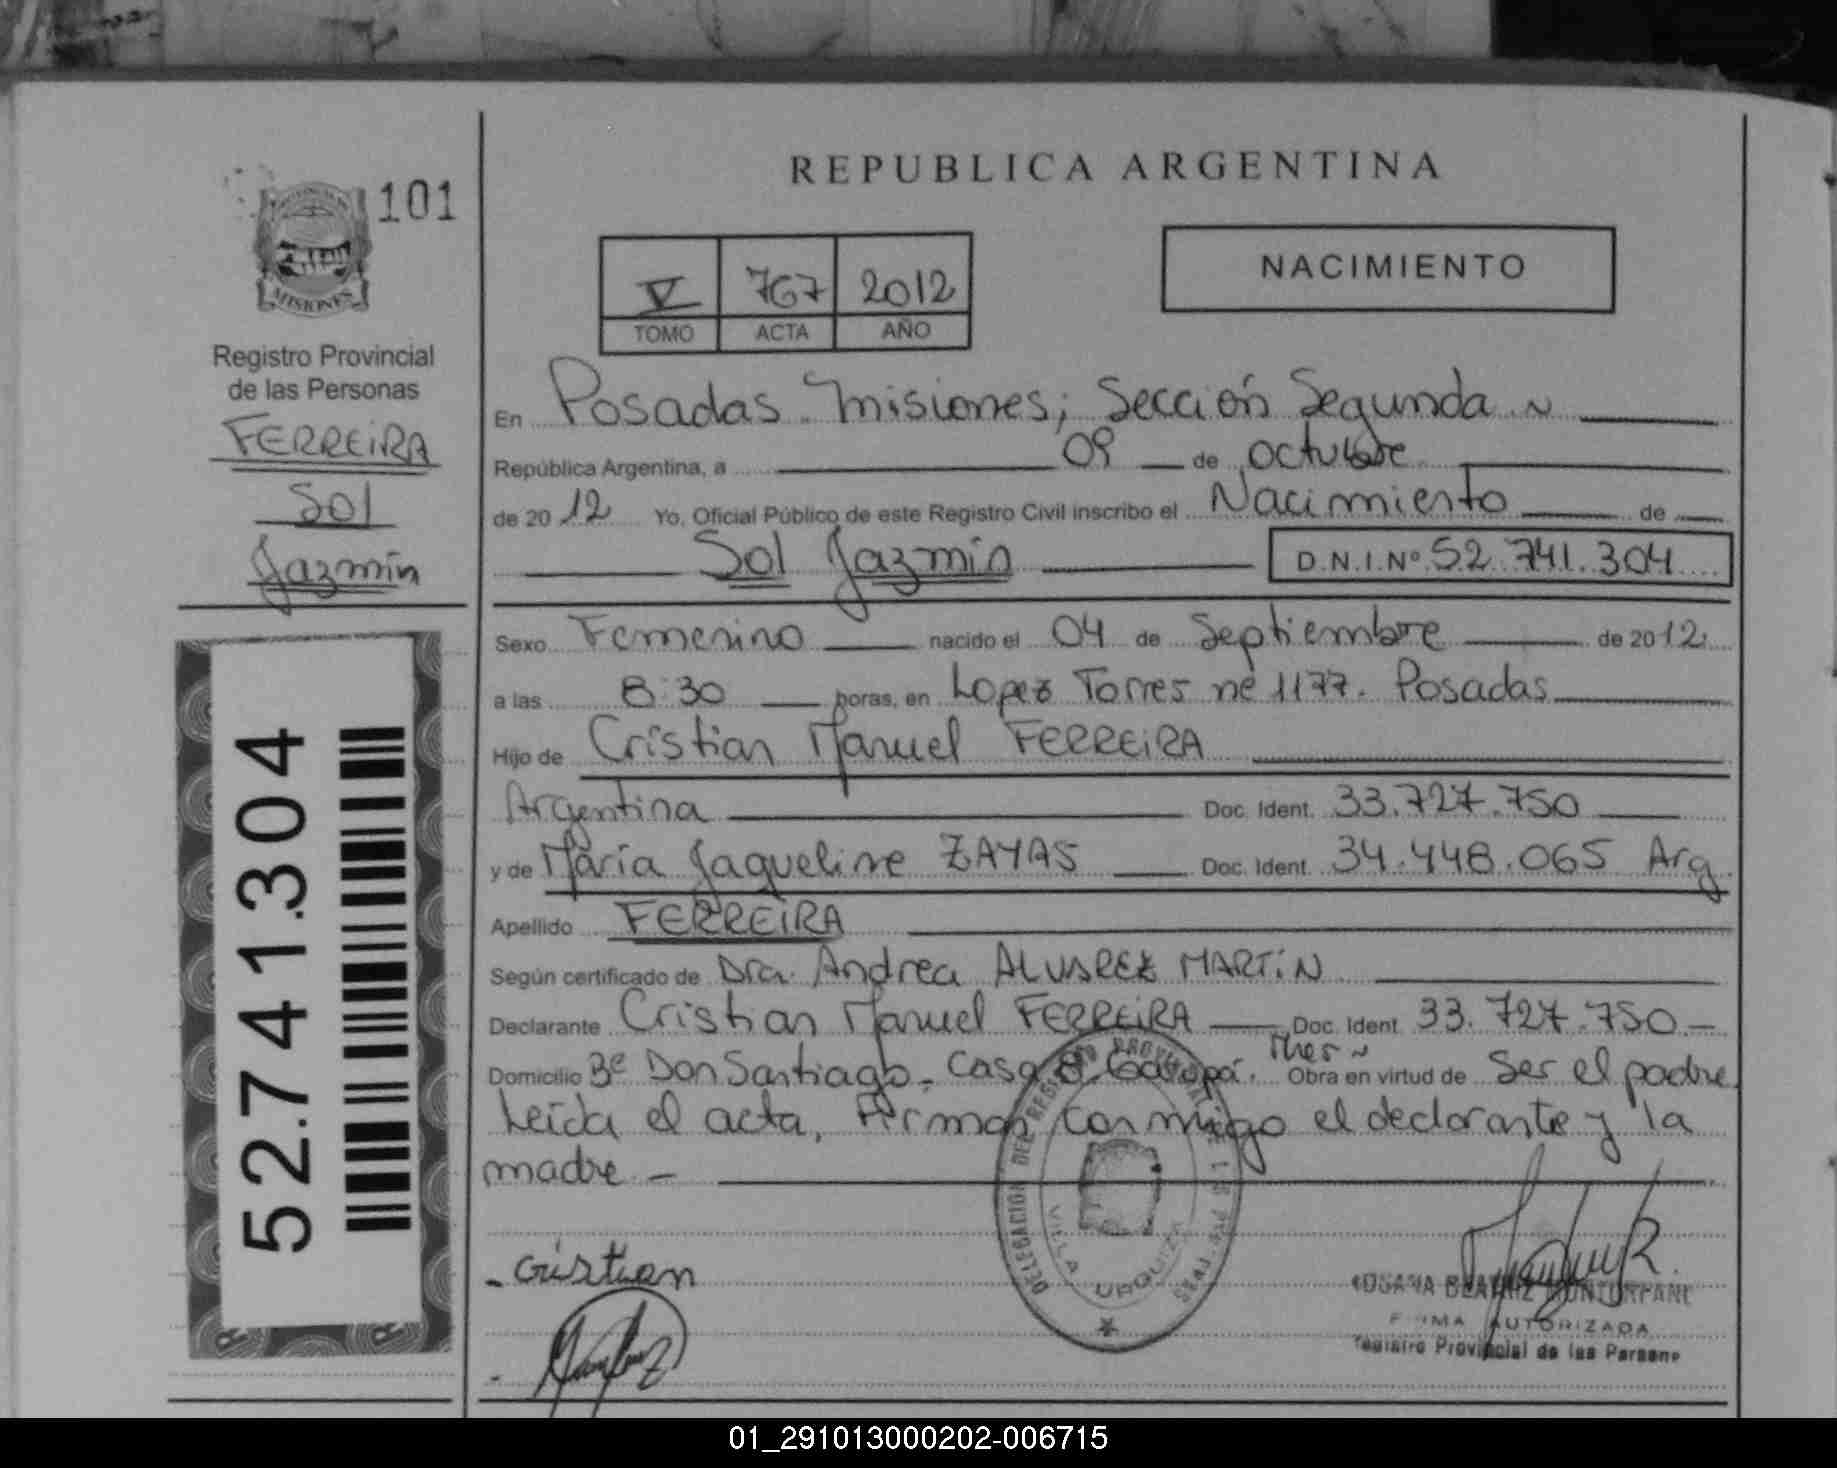 101
MISIONES
Registro Provincial
de las Personas
FERREIRA
Sol
Jazmín
52.741.304
REPUBLICA ARGENTINA
V 767 2012
TOMO ACTA AÑO
NACIMIENTO
En Posadas. Misiones; Sección Segunda
República Argentina, a 09 de octubre
de 20 12 Yo, Oficial Público de este Registro Civil inscribo el Nacimiento de
Sol Jazmín D.N.I.Nº 52.741.304
Sexo Femenino nacido el 04 de Septiembre de 2012
a las 8:30 horas, en Lopez Torres nº 1177. Posadas
Hijo de Cristian Manuel FERREIRA
Argentina Doc. Ident. 33.727.750
y de María Jaqueline ZAYAS Doc. Ident. 34.448.065 Arg
Apellido FERREIRA
Según certificado de Dra. Andrea ALVAREZ MARTíN
Declarante Cristian Manuel FERREIRA Doc. Ident. 33.727.750
Domicilio Bº Don Santiago - Casa 8. Garupá. Mnes Obra en virtud de Ser el padre
Leída el acta, Firman conmigo el declarante y la
madre. -
DELEGACION DEL REGISTRO PROVINCIAL
VILLA URQUIZA
Cristian
FIRMA AUTORIZADA
Registro Provincial de las Persone
01_291013000202-006715